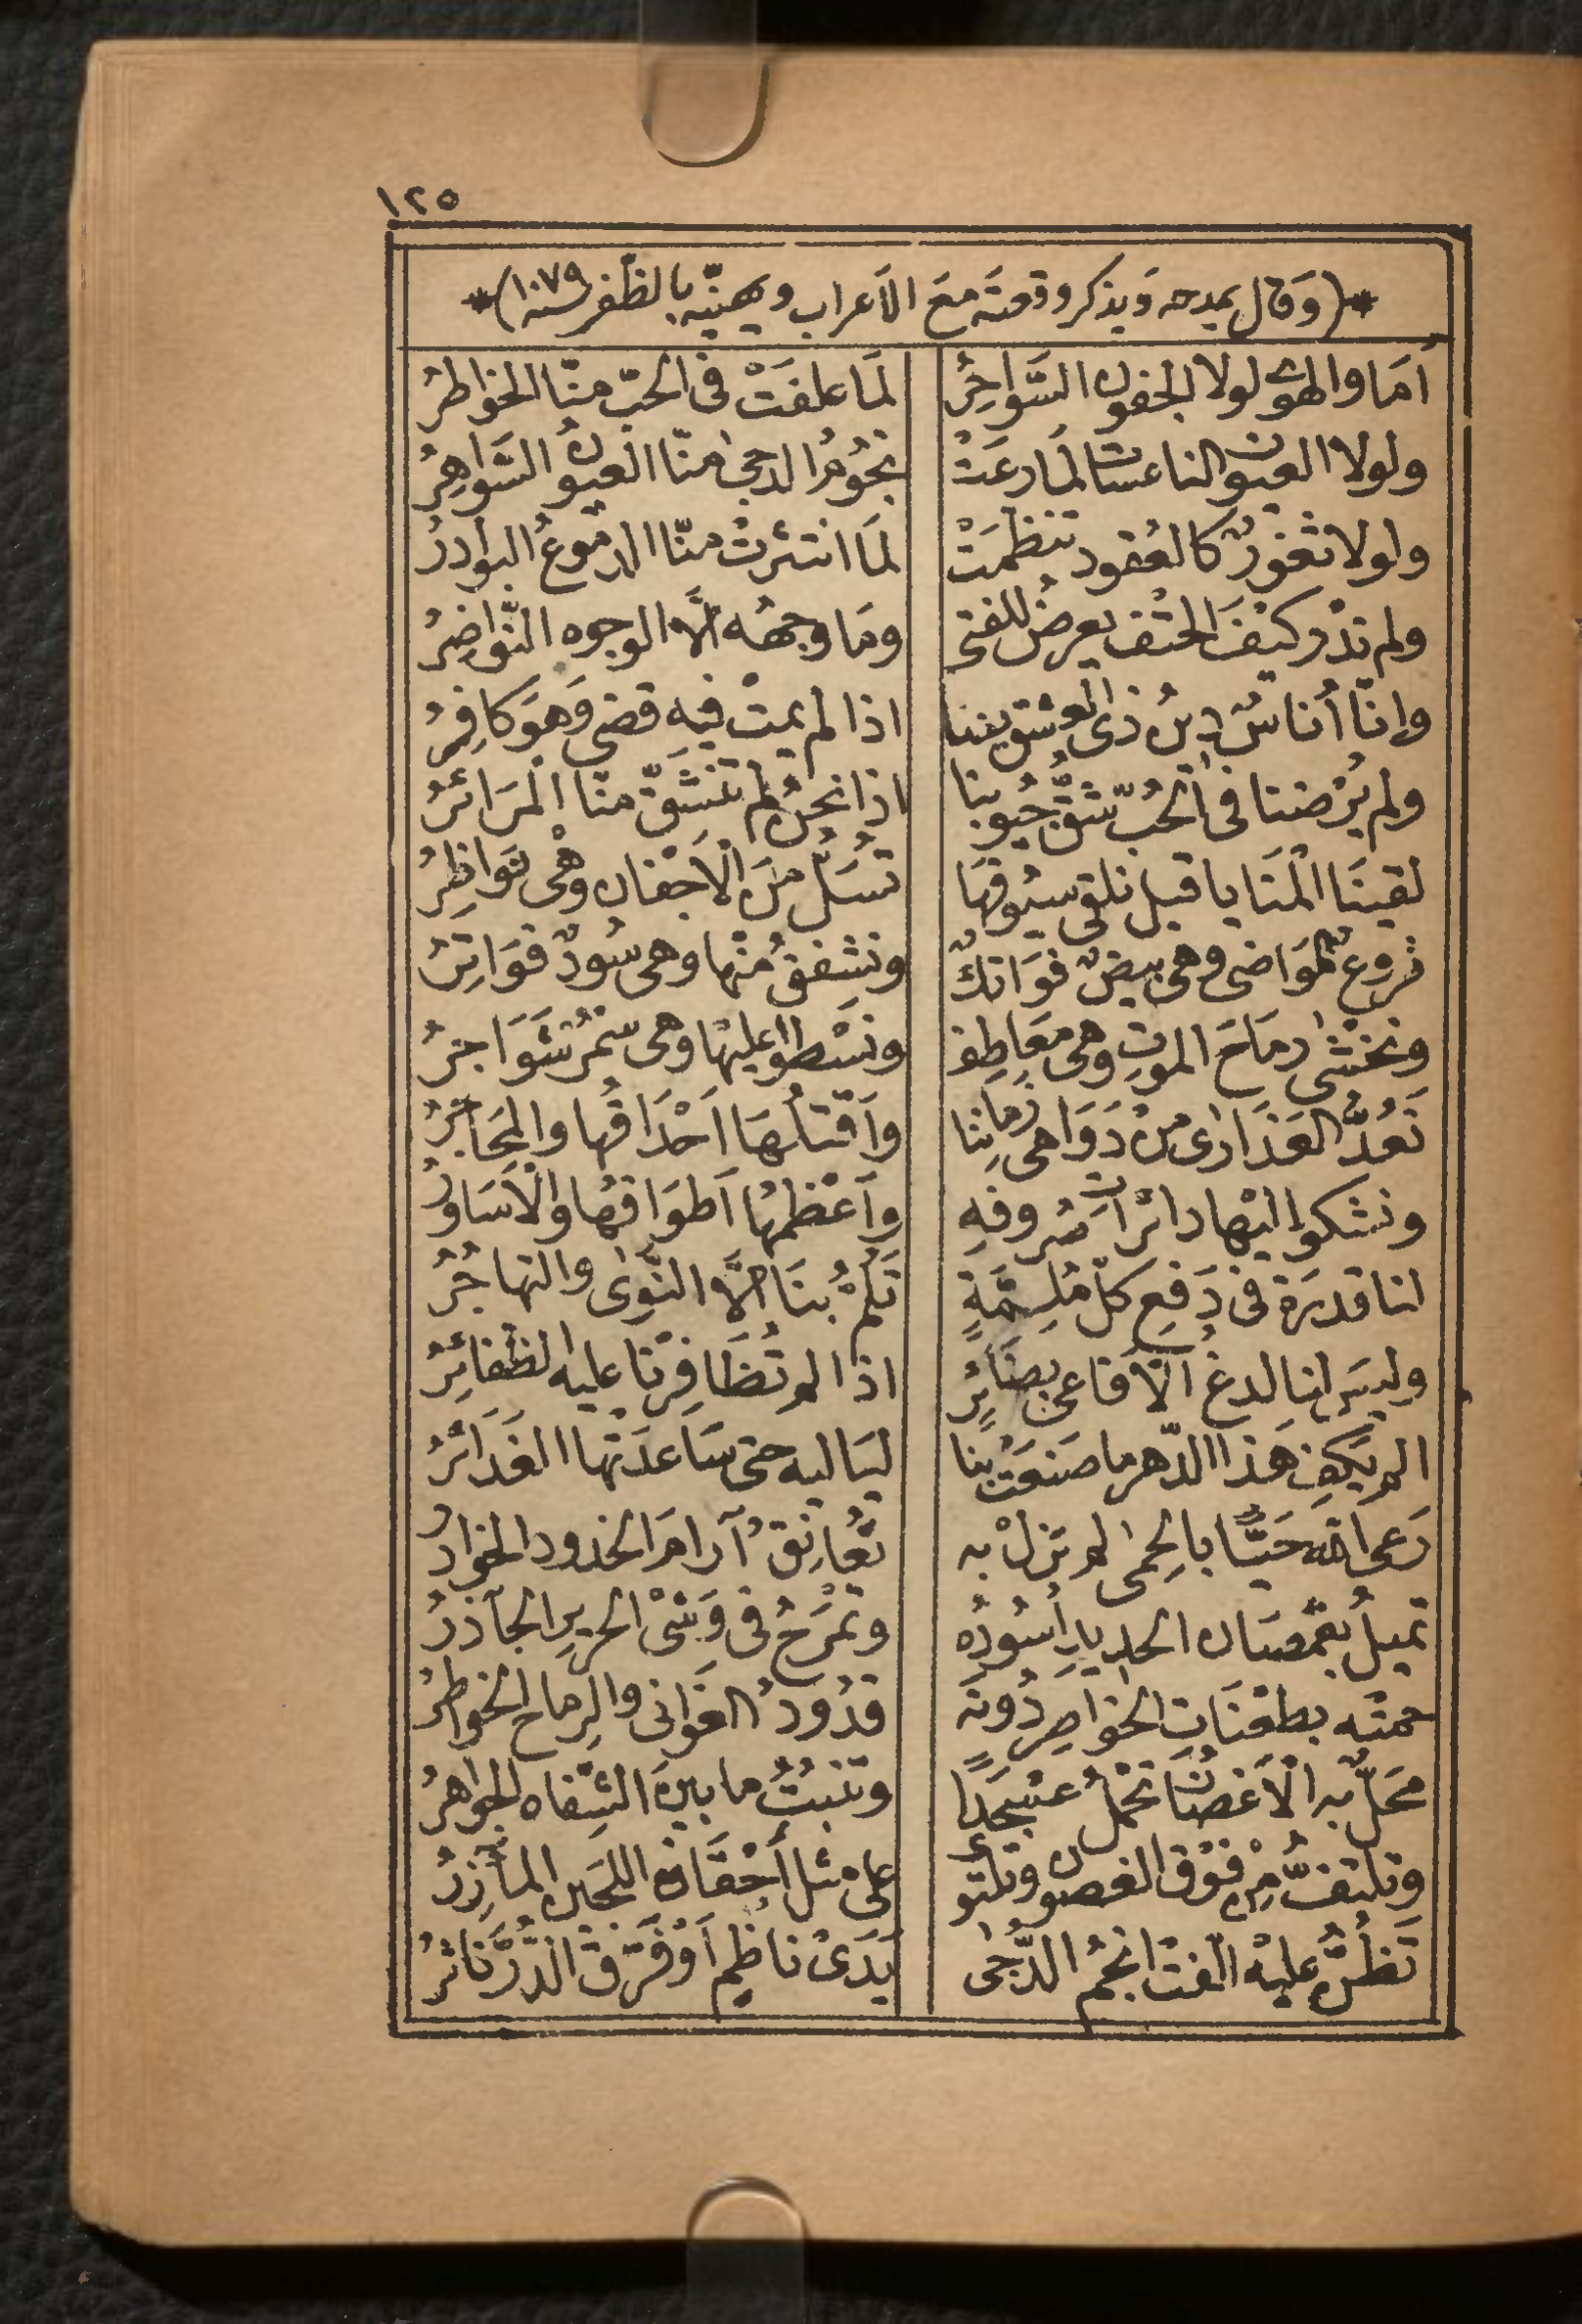 ١٢٥
*(وَقال يمدحه وَيذكر وقعتَه معَ الأعراب ويهنّيه بالظّفر سنة ١٠٧٩)*
أمَا والهوى لولا الجفون السَّواحِرُ لمَا علقَتْ فى الحبّ منّا الخواطرُ
ولولا العيون الناعسات لمَا رعَتْ نجُومُ الدجىٰ منّا العيونُ السَّواهِرُ
ولولا ثغورٌ كالعُقود تنظمَتْ لمَا انتثرتْ منّا الدموعُ البوادرُ
ولم ندْر كيْفَ الحتْف يعرضُ للفتى ومَا وجههُ الَّا الوجوه النَّواضِرُ
وإنّا أُناسٌ دينُ ذى العشق بيننا اذا لم يمتْ فيه قضىٰ وَهوَ كافِرُ
ولم يُرْضنا فى الحُبّ شَقُّ جُيُوبنا اذا نحنُ لم تنشَقّ منّا المرَائرُ
لقينَا المنَايا قبل نلقى سيُوفهَا تُسَلُّ منَ الاَجْفان وهْى نوَاظِرُ
نُروعُ المَوَاضى وهى بيضٌ فوَاتكٌ ونشفقُ منْها وهى سُودٌ فوَاتِرُ
ونخشىٰ رمَاحَ الموتِ وهى معَاطِفٌ ونَسْطوا عليهَا وهى سُمْرٌ شَوَاجرُ
نَعُدُّ العَذَارى منْ دَوَاهى زمَانِنا وأقتلُهَا اَحْدَاقُها والمحَاجَرُ
ونشكوا اليْها دائرات صُروفهِ وأعْظمهَا اَطوَاقهُا والاَسَاورُ
لنا قدرَة فى دَفعِ كلّ مُلِمَّةٍ تلُمّ بنَا الَّا النَّوىٰ والتهاجُرُ
وليسَ لنا لدغُ الاَفاعى بضَائرٍ اذا لم تُظَافِرْنا عليه الظفائِرُ
الم يَكفِ هَذا الدّهر ما صَنعَتْ بنا ليَاليه حتى سَاعدَتْها الغَدَائرُ
رَعى الله حَيًّا بالحِمىٰ لم تزلْ به تُعَانِقُ آرامَ الخدود الخوادرُ
تميلُ بقمصَان الحديدِ اُسُودُه وتمْرَحُ فى وَشْىْ الحريرِ الجآذرُ
حمتْه بطعْنَات الخوَاصِر دُونَه قدُودُ الغَوَانى والرماح الخواطرُ
محَلٌّ به الاَغصَانُ تحمل عسْجَدًا وتنبتُ ما بينَ الشّفاه الجواهرُ
وتلتفُّ منْ فوْق الغصون وتلتوى على مثل أحْقَاف اللجين المآزرُ
تَظُنُّ عليْه الفتْ انجُم الدُّجىٰ يَدَىْ ناظِمٍ اَوْ فَرَّقَ الدُّرَّ ناثرُ